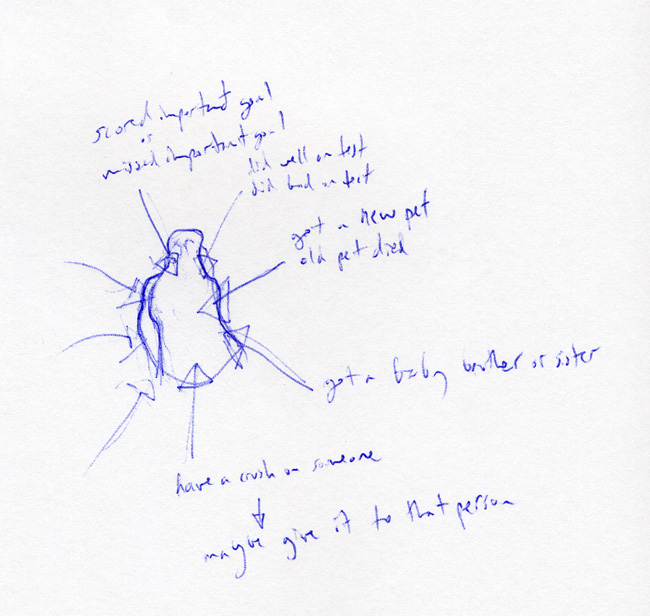 scored important goal
or
missed important goal
did well on test
did bad on test
got a new pet
old pet died
got a baby brother or sister
have a crush on someone
maybe give it to that person